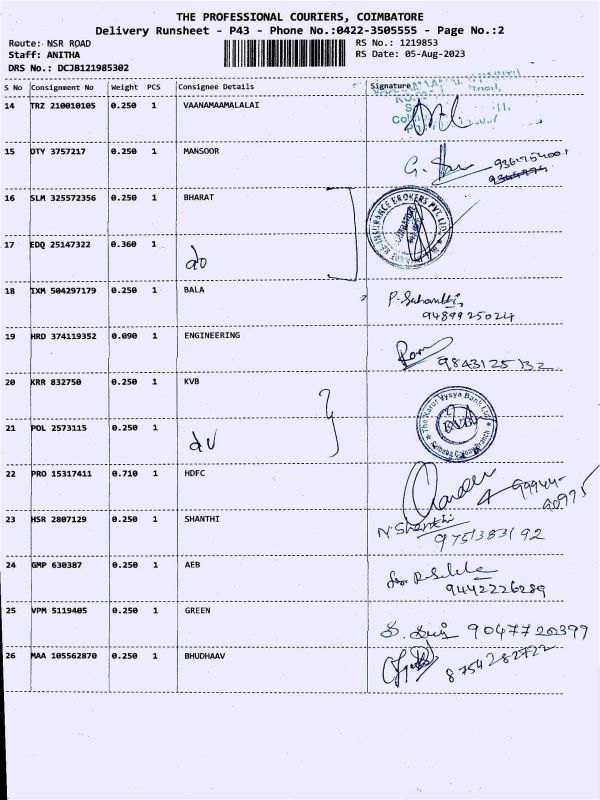 THE PROFESSIONAL COURIERS, COIMBATORE
Delivery Runsheet - P43 - Phone No.:0422-3505555 - Page No.:2
Route: NSR ROAD
RS No.: 1219853
Staff: ANITHA
RS Date: 05-Aug-2023
DRS No.: DCJB121985302
S No Consignment No Weight PCS Consignee Details Signature
14 TRZ 210010105 0.250 1 VAANAMAAMALALAI
15 DTY 3757217 0.250 1 MANSOOR
16 SLM 325572356 0.250 1 BHARAT
RE-INSURANCE BROKERS PVT. LTD.
17 EDQ 25147322 0.360 1 do
18 IXM 504297179 0.250 1 BALA
9489925024
19 HRD 374119352 0.090 1 ENGINEERING
9843125132
20 KRR 832750 0.250 1 KVB
The Karur Vysya Bank Ltd
21 POL 2573115 0.250 1 do
22 PRO 15317411 0.710 1 HDFC
99944-
23 HSR 2807129 0.250 1 SHANTHI N. Shanthi
9751383192
24 GMP 630387 0.250 1 AEB
9442226289
25 VPM 5119405 0.250 1 GREEN
9047720399
26 MAA 105562870 0.250 1 BHUDHAAV
8754282722